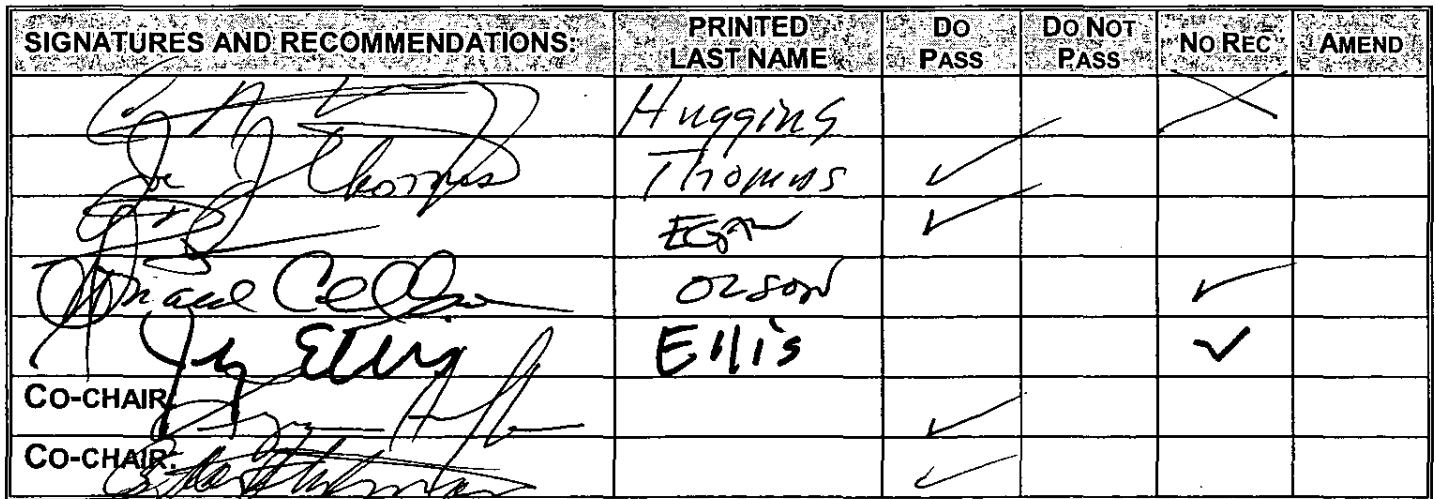 SIGNATURES AND RECOMMENDATIONS: PRINTED LAST NAME DO PASS DO NOT PASS NO REC AMEND
Huggins
Thomas Thomas ✓
EGAN ✓
Olson ✓
Ellis Ellis ✓
CO-CHAIR: ✓
CO-CHAIR: ✓